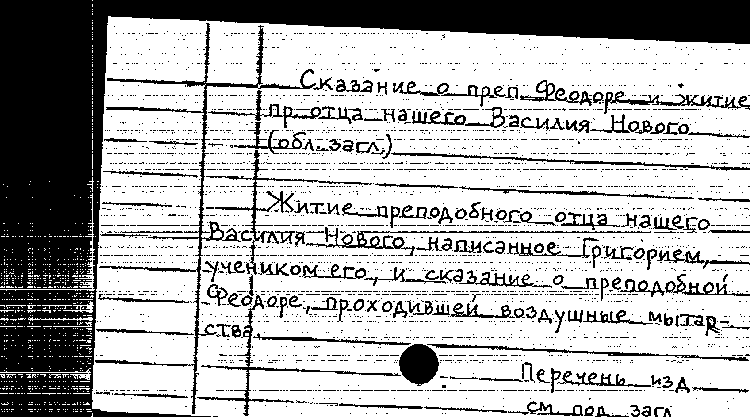 Сказание о преп. Феодоре и житие
пр. отца нашего Василия Нового
(обл. загл.)
Житие преподобного отца нашего
Василия Нового, написанное Григорием,
учеником его, и сказание о преподобной
Феодоре, проходившей воздушные мытар-
ства.
Перечень изд.
см. под загл.